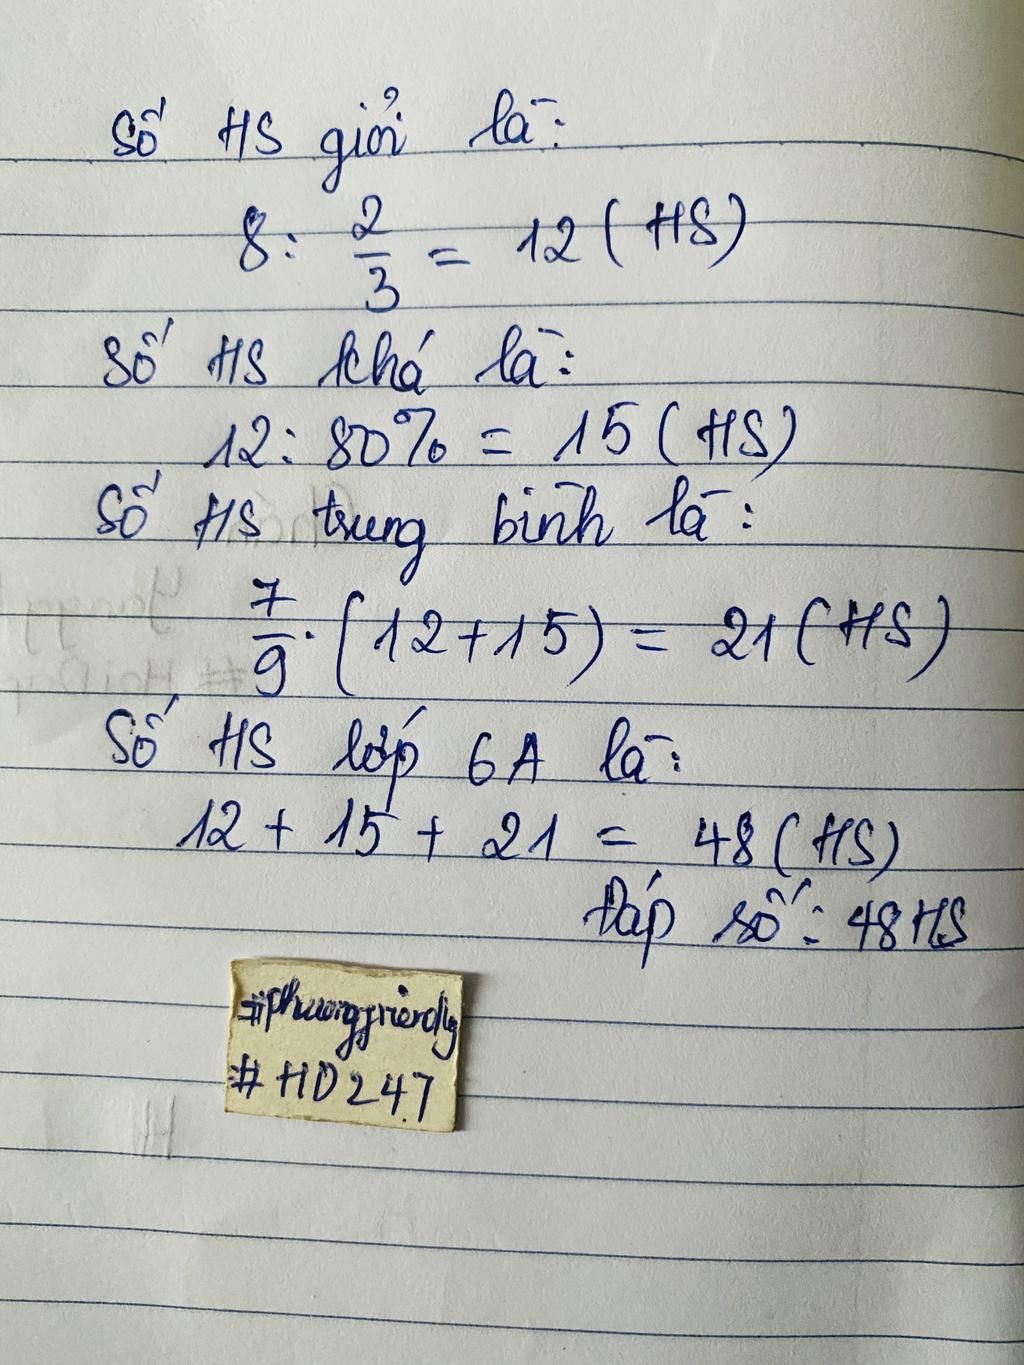 Số HS giỏi là:
8 : 2/3 = 12 (HS)
Số HS khá là:
12 : 80% = 15 (HS)
Số HS trung bình là:
7/9 . (12 + 15) = 21 (HS)
Số HS lớp 6A là:
12 + 15 + 21 = 48 (HS)
Đáp số: 48 HS
#phuongfriendly
#HD247